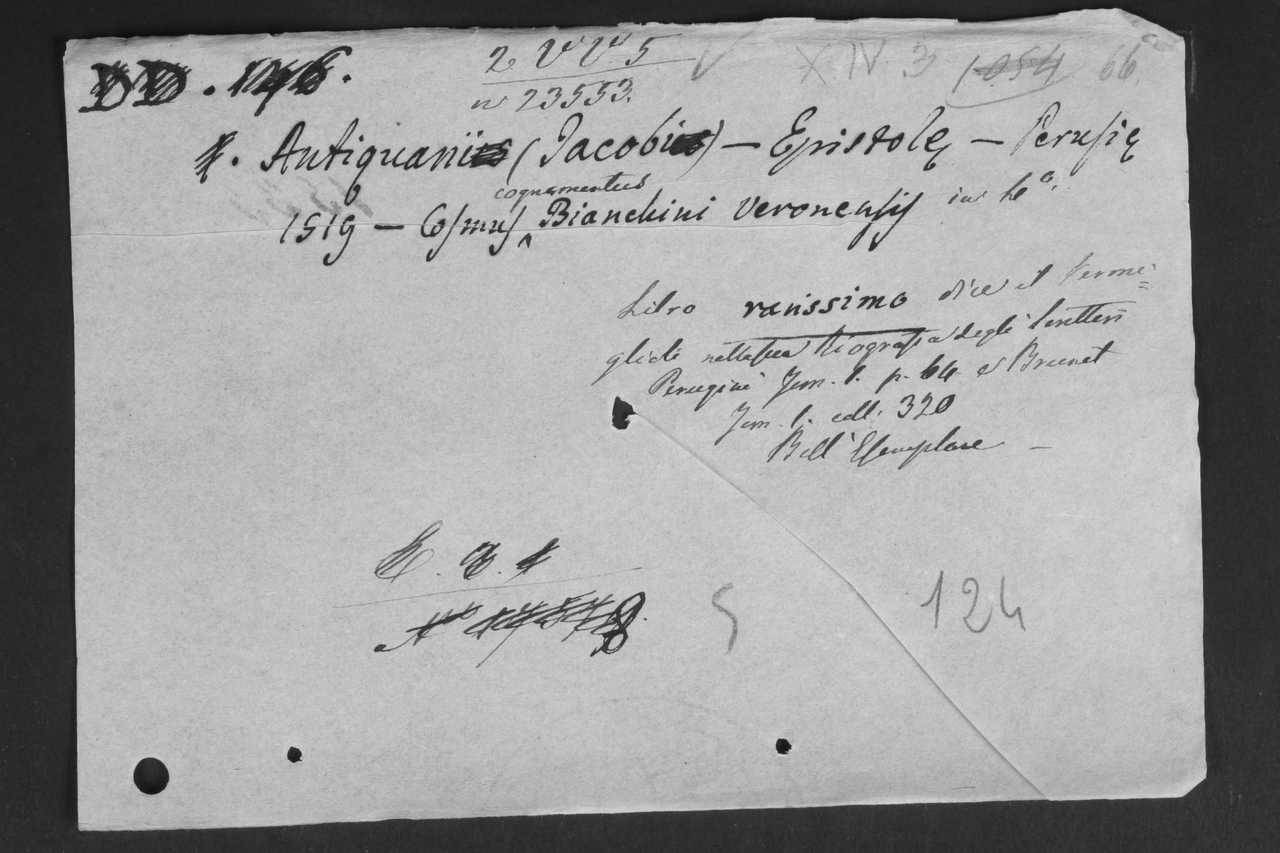 DD. 146.
2 VV 5
n 23553.
X. IV. 3 1.054 66
Antiquarii (Jacobi) – Epistolę – Perusię
cognomentus
1519 – Cosmus Bianchini Veronensis in 4º.
Libro rarissimo dice il Vermi=
glioli nella sua Biografia degli Scrittori
Perugini Tom. 1. p. 64 e Brunet
Tom. 1. coll. 320
Bell'Esemplare –
5
124